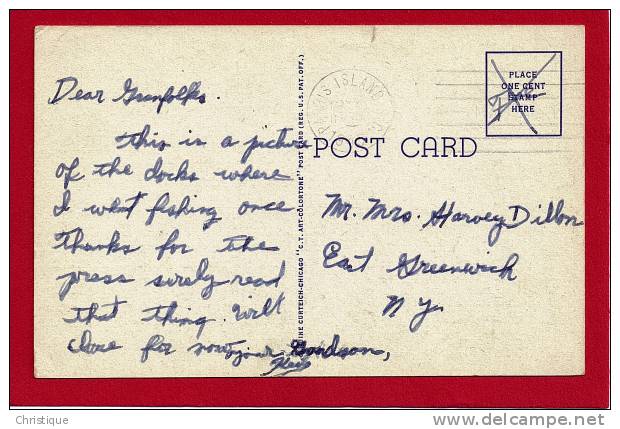 Dear Granfolks.
this is a picture
of the docks where
I went fishing once
thanks for the
press surely read
that thing. Will
close for now your Grandson,
POST CARD
PLACE
ONE CENT
STAMP
HERE
Free
Mr. Mrs. Harvey Dillon
East Greenwich
N y.
CURTEICH-CHICAGO "C.T. ART-COLORTONE" POST CARD (REG. U.S. PAT. OFF.)
IS ISLAND
Christique
www.delcampe.net